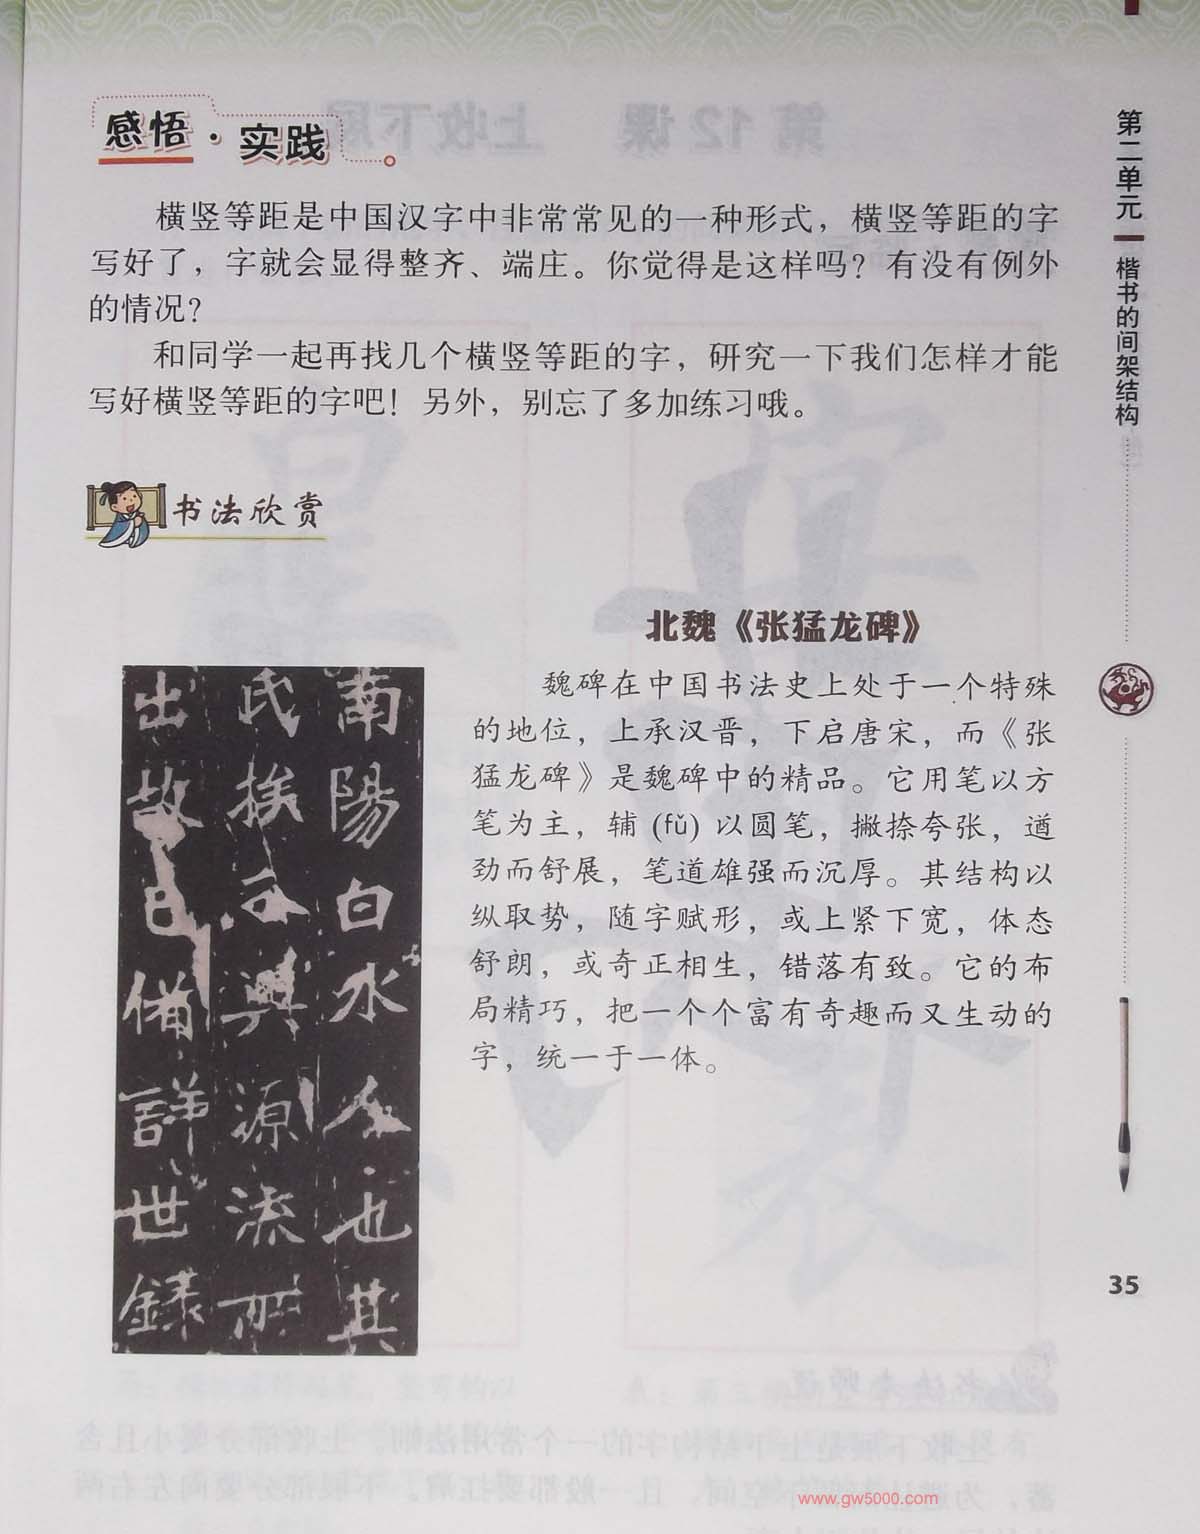 感悟·实践
横竖等距是中国汉字中非常常见的一种形式，横竖等距的字
写好了，字就会显得整齐、端庄。你觉得是这样吗？有没有例外
的情况？
和同学一起再找几个横竖等距的字，研究一下我们怎样才能
写好横竖等距的字吧！另外，别忘了多加练习哦。
书法欣赏
北魏《张猛龙碑》
魏碑在中国书法史上处于一个特殊
的地位，上承汉晋，下启唐宋，而《张
猛龙碑》是魏碑中的精品。它用笔以方
笔为主，辅 (fǔ) 以圆笔，撇捺夸张，遒
劲而舒展，笔道雄强而沉厚。其结构以
纵取势，随字赋形，或上紧下宽，体态
舒朗，或奇正相生，错落有致。它的布
局精巧，把一个个富有奇趣而又生动的
字，统一于一体。
南陽白水人也其
氏挨 興源流所
出故已備詳世録
第二单元 楷书的间架结构
35
www.gw5000.com